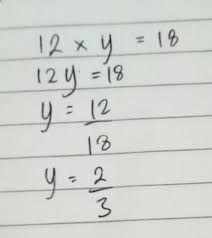 12 × y = 18
12y = 18
y = 12/18
y = 2/3